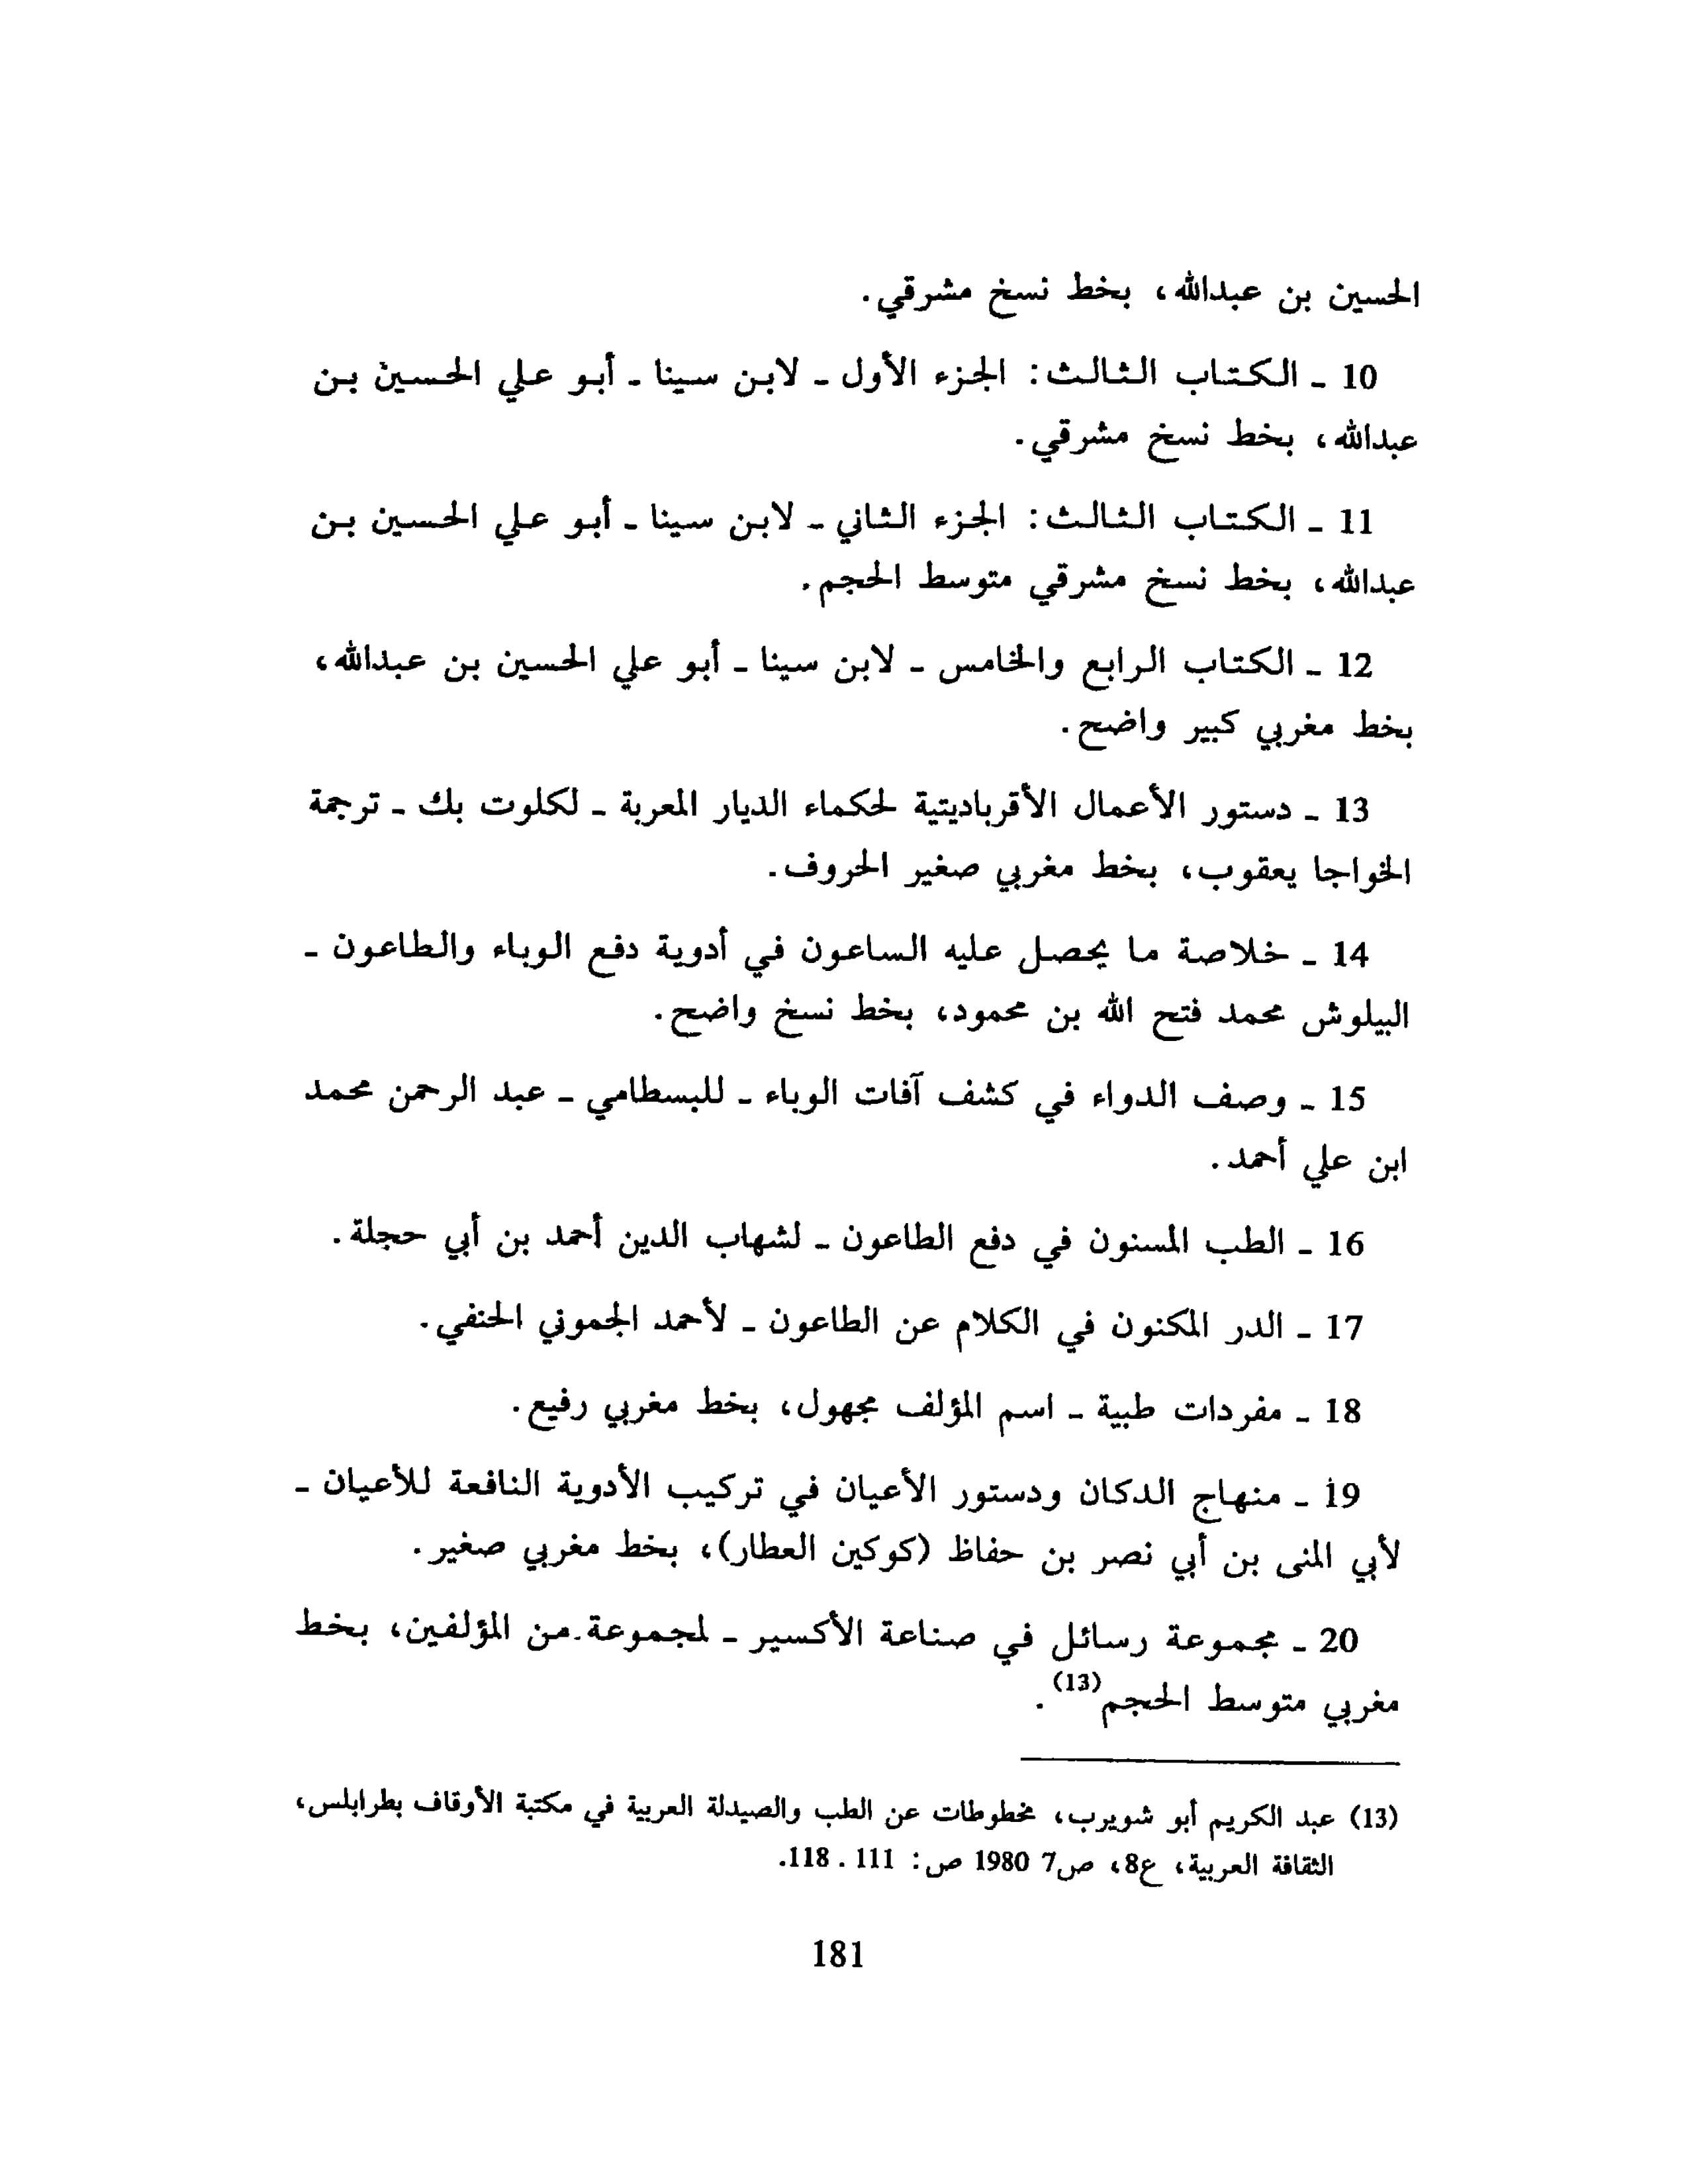 الحسين بن عبدالله، بخط نسخ مشرقي.
10 ـ الكتاب الثالث: الجزء الأول ـ لابن سينا ـ أبو علي الحسين بن
عبدالله، بخط نسخ مشرقي.
11 ـ الكتاب الثالث: الجزء الثاني ـ لابن سينا ـ أبو علي الحسين بن
عبدالله، بخط نسخ مشرقي متوسط الحجم.
12 ـ الكتاب الرابع والخامس ـ لابن سينا ـ أبو علي الحسين بن عبدالله،
بخط مغربي كبير واضح.
13 ـ دستور الأعمال الأقرباديتية لحكماء الديار المعربة ـ لكلوت بك ـ ترجمة
الخواجا يعقوب، بخط مغربي صغير الحروف.
14 ـ خلاصة ما يحصل عليه الساعون في أدوية دفع الوباء والطاعون ـ
البيلوش محمد فتح الله بن محمود، بخط نسخ واضح.
15 ـ وصف الدواء في كشف آفات الوباء ـ للبسطامي ـ عبد الرحمن محمد
ابن علي أحمد.
16 ـ الطب المسنون في دفع الطاعون ـ لشهاب الدين أحمد بن أبي حجلة.
17 ـ الدر المكنون في الكلام عن الطاعون ـ لأحمد الجموني الحنفي.
18 ـ مفردات طبية ـ اسم المؤلف مجهول، بخط مغربي رفيع.
19 ـ منهاج الدكان ودستور الأعيان في تركيب الأدوية النافعة للأعيان ـ
لأبي المنى بن أبي نصر بن حفاظ (كوكين العطار)، بخط مغربي صغير.
20 ـ مجموعة رسائل في صناعة الأكسير ـ لمجموعة من المؤلفين، بخط
مغربي متوسط الحجم(13).
(13) عبد الكريم أبو شويرب، مخطوطات عن الطب والصيدلة العربية في مكتبة الأوقاف بطرابلس،
الثقافة العربية، ع8، ص7 1980 ص: 111 . 118.
181